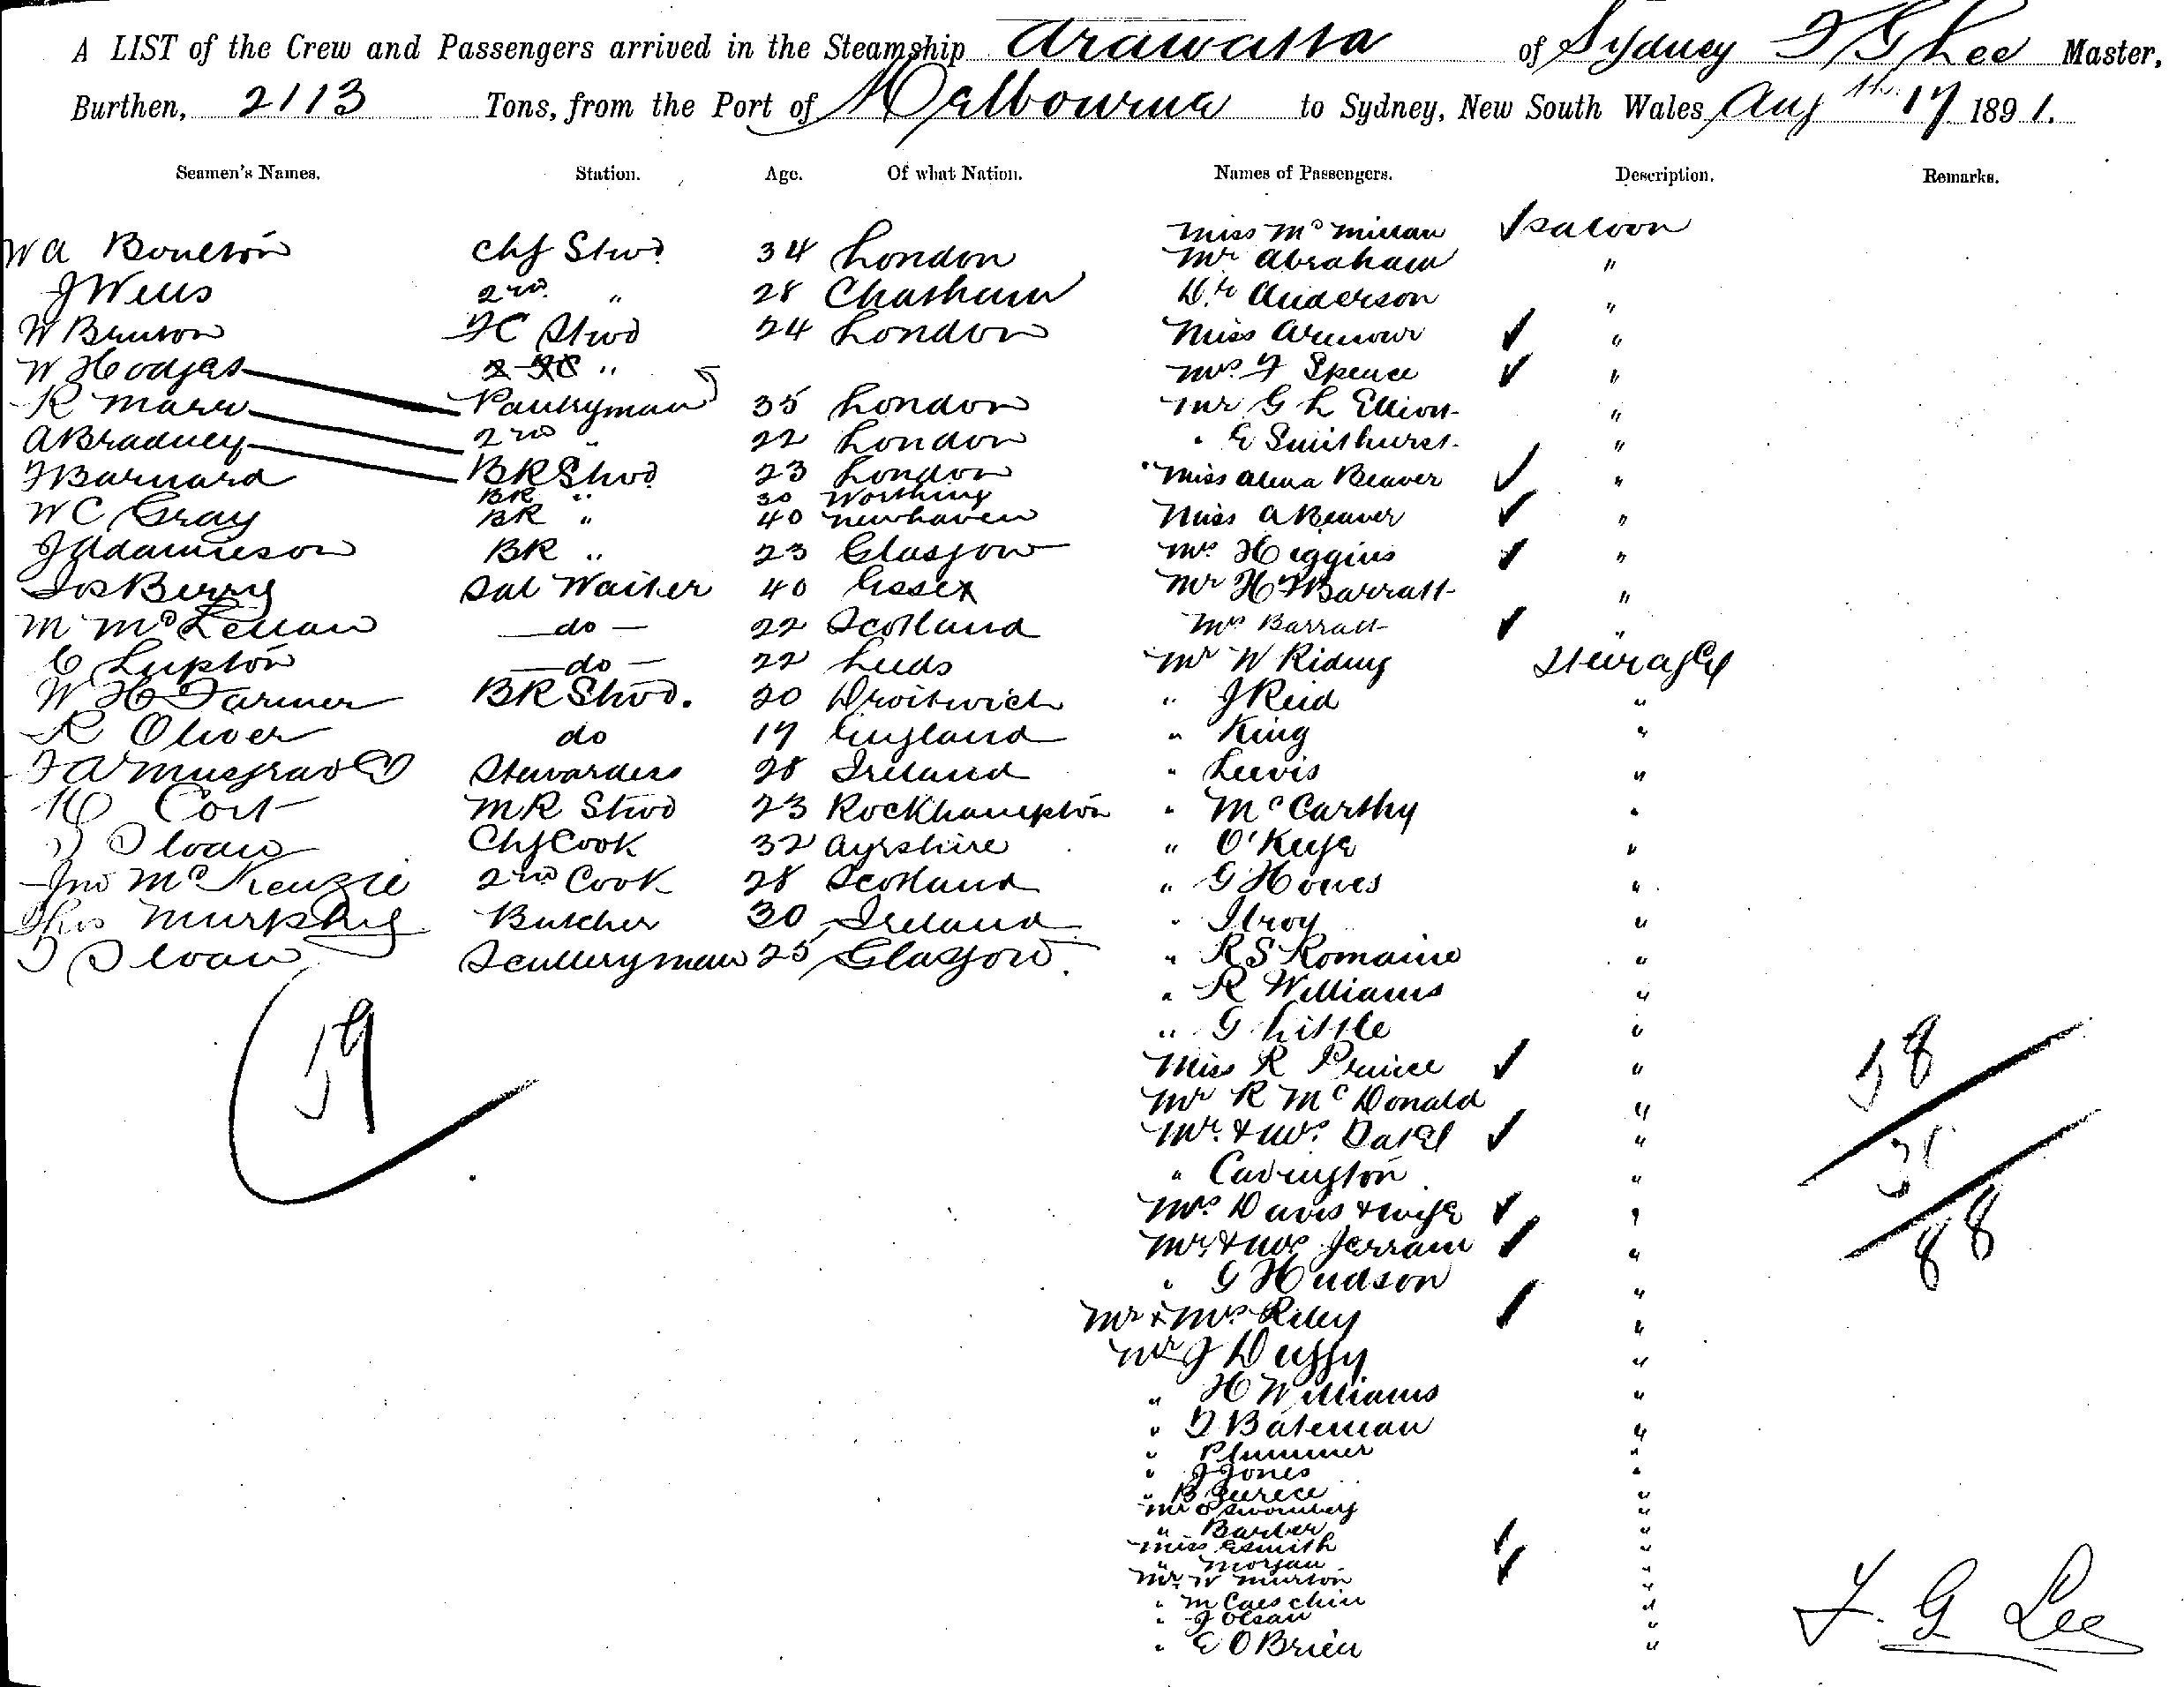 A LIST of the Crew and Passengers arrived in the Steamship Arawatta of Sydney F G Lee Master,
Burthen, 2113 Tons, from the Port of Melbourne to Sydney, New South Wales Aug 17th 1891.
Seamen's Names. Station. Age. Of what Nation. Names of Passengers. Description. Remarks.
Miss McMillan ✓ Saloon
W A Boulton Chf Stwd 34 London Mr Abraham "
J Wells 2nd " 28 Chatham Dr Anderson "
W Bruton FC Stwd 24 London Miss Armour ✓ "
W Hodges 2 FC " Mrs F Spence ✓ "
R Marr Pantryman 35 London Mr G L Elliott "
A Bradney 2nd " 22 London " E Smithurst "
F Barnard BR Stwd 23 London Miss Alma Beaver ✓ "
BR " 30 Worthing
W C Gray BR " 40 Newhaven Miss A Beaver ✓ "
J Adamieson BR " 23 Glasgow Mrs Higgins ✓ "
Jos Berry Sal Waiter 40 Essex Mr H F Barratt "
M McLellan do 22 Scotland Mrs Barratt ✓ "
C Lupton do 22 Leeds Mr W Riding Steerage
W H Farmer BR Stwd. 20 Droitwich " J Reid "
R Oliver do 19 England " King "
F A Musgrave Stewardess 28 Ireland " Lewis "
H Cort MR Stwd 23 Rockhampton " McCarthy "
D Sloan Chf Cook 32 Ayrshire " O'Keefe "
Jno McKenzie 2nd Cook 28 Scotland " G Howes "
Thos Murphy Butcher 30 Ireland " Ilroy "
T Sloan Sculleryman 25 Glasgow. " R S Romaine "
" R Williams "
59 " G Little "
Miss R Prince ✓ " 58
Mr R McDonald "
Mr & Mrs Datel ✓ "
" Cavington "
Mrs Davis & wife ✓ "
Mr & Mrs Jerram ✓ " 88
" G Hudson "
Mr & Mrs Riley ✓ "
Mr J Duffy "
" H Williams "
" D Bateman "
" Plummer "
" J Jones "
" B "
Mr "
" Barber "
Miss Esmith ✓ "
" Morgan ✓ "
Mr W Murton "
" M "
" J Olsan "
" E O Brien "
F. G Lee